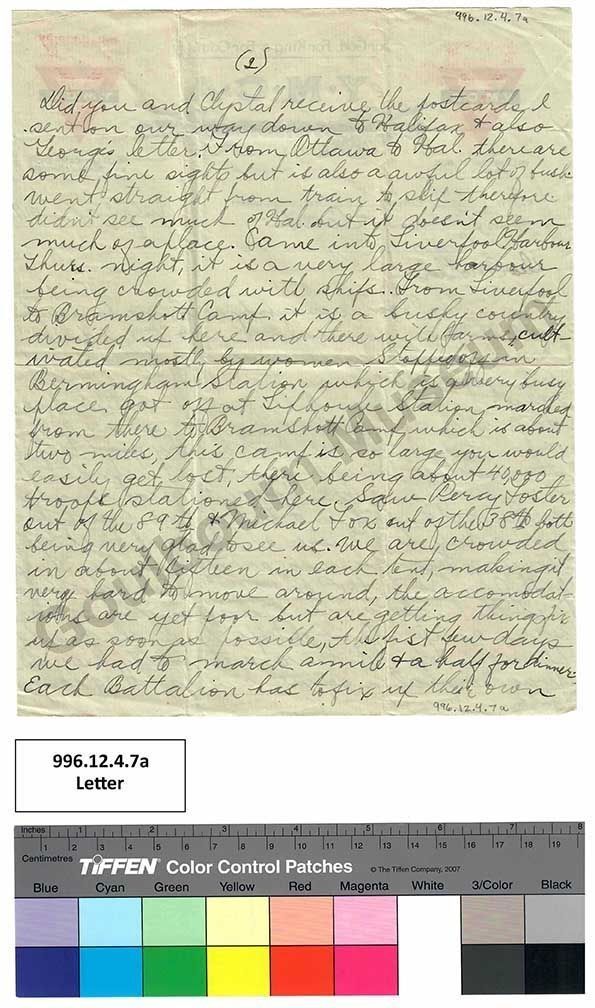 996.12.4.7a
(2)
Did you and Clystal recive the postcards I
sent on our way down to Halifax & also
Georges letter. From Ottawa to Hal. there are
some fine sights but is also a awful lot of bush
went straight from train to ship therefore
didn't see much of Hal. but it doesn't seem
much of a place. Came into Liverpool Harbour
Thurs. night, it is a very large harbour
being crowded with ships. From Liverpool
to Bramshott Camp it is a bushy country
divided up here and there with farms, cult-
vated mostly by women. Stopped in
Bermingham Station which is a very busy
place. Got off at Liphook Station, marched
from there to Bramshott Camp which is about
two miles, this camp is so large you would
easily get lost, there being about 40,000
troops stationed here. Saw Percy Foster
out of the 89th & Michael Fox out of the 38th both
being very glad to see us. We are crowded
in about fifteen in each tent, making it
very hard to move around, the accomodat-
ions are yet poor but are getting things fix
up as soon as possible, the fist few days
we had to march a mile & a half for dinner
Each Battalion has to fix up their own
996.12.4.7a
Goulbourn Museum
996.12.4.7a
Letter
Inches 1 2 3 4 5 6 7 8
Centimetres 1 2 3 4 5 6 7 8 9 10 11 12 13 14 15 16 17 18 19
TIFFEN Color Control Patches © The Tiffen Company, 2007
Blue Cyan Green Yellow Red Magenta White 3/Color Black